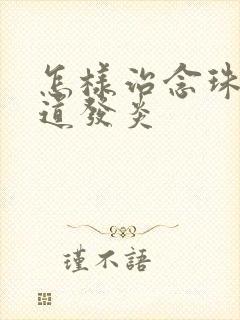 怎樣治念珠
道發炎
瑾不語